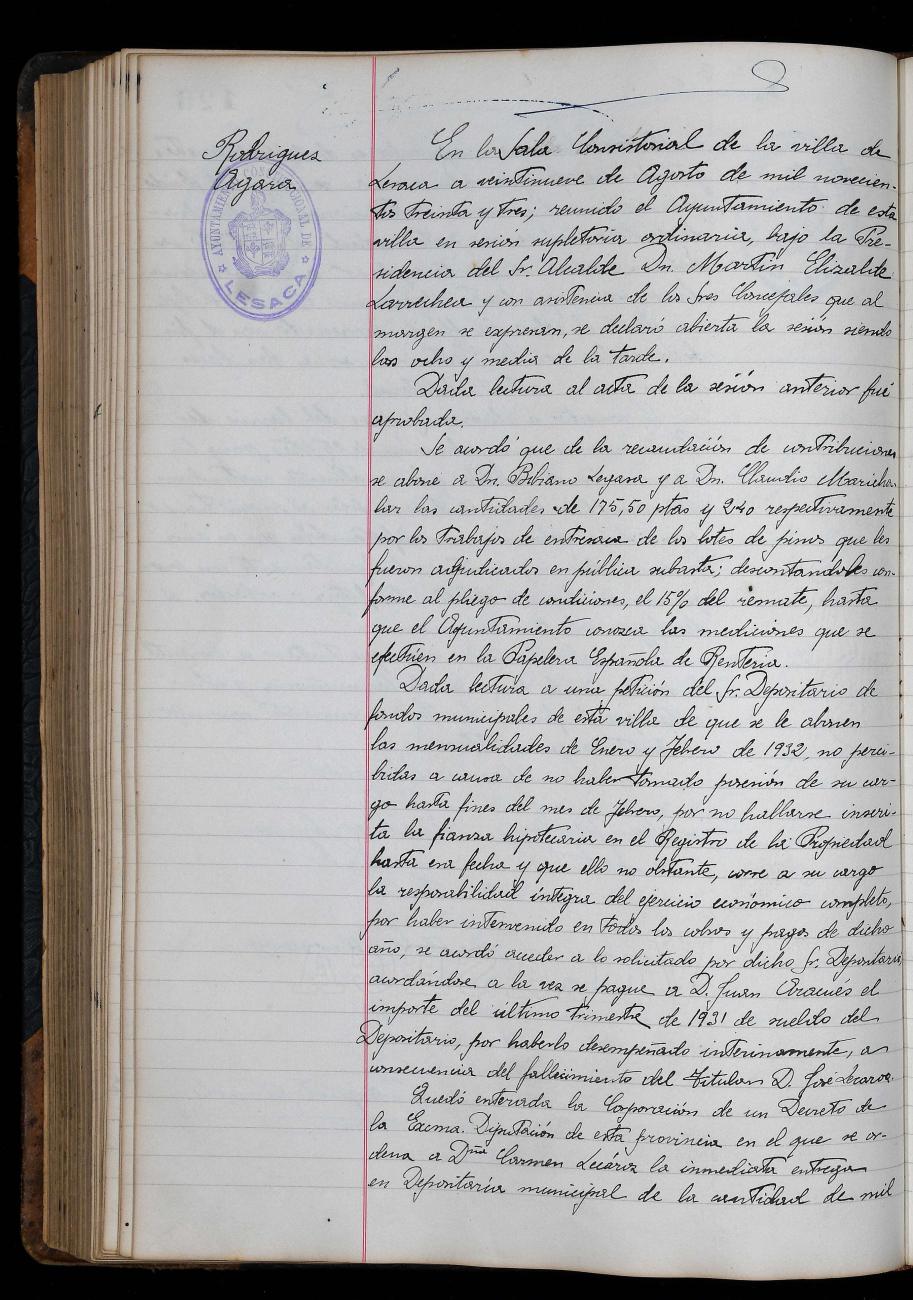 Rodriguez
Agara
AYUNTAMIENTO CONSTITUCIONAL DE
LESACA
En la Sala Consistorial de la villa de
Lesaca a veintinueve de Agosto de mil novecien-
tos treinta y tres; reunido el Ayuntamiento de esta
villa en sesión supletoria ordinaria, bajo la Pre-
sidencia del Sr. Alcalde Dn. Martín Elizalde
Larrechea y con asistencia de los Sres Concejales que al
margen se expresan, se declaró abierta la sesión siendo
las ocho y media de la tarde.
Dada lectura al acta de la sesión anterior fué
aprobada.
Se acordó que de la recaudación de contribuciones
se abone a Dn. Bibiano Legasa y a Dn. Claudio Mariche-
lar las cantidades de 175,50 ptas y 240 respectivamente
por los trabajos de entresaca de los lotes de pinos que les
fueron adjudicados en pública subasta; descontandoles con-
forme al pliego de condiciones, el 15% del remate, hasta
que el Ayuntamiento conozca las mediciones que se
efectúen en la Papelera Española de Rentería.
Dada lectura a una petición del Sr. Depositario de
fondos municipales de esta villa de que se le abonen
las mensualidades de Enero y Febrero de 1932, no perci-
bidas a causa de no haber tomado posesión de su car-
go hasta fines del mes de Febrero, por no hallarse inscri-
ta la fianza hipotecaria en el Registro de la Propiedad
hasta esa fecha y que ello no obstante, corre a su cargo
la resposabilidad íntegra del ejercicio económico completo,
por haber intervenido en todos los cobros y pagos de dicho
año, se acordó acceder a lo solicitado por dicho Sr. Depositario,
acordándose a la vez se pague a D. Juan Aracués el
importe del último trimestre de 1931 de sueldo del
Depositario, por haberlo desempeñado interinamente, a
consecuencia del fallecimiento del Titular D. José Lecaroz.
Quedó enterada la Corporación de un Decreto de
la Excma. Diputación de esta provincia en el que se or-
dena a Dña Carmen Lecároz la inmediata entrega
en Depositaría municipal de la cantidad de mil